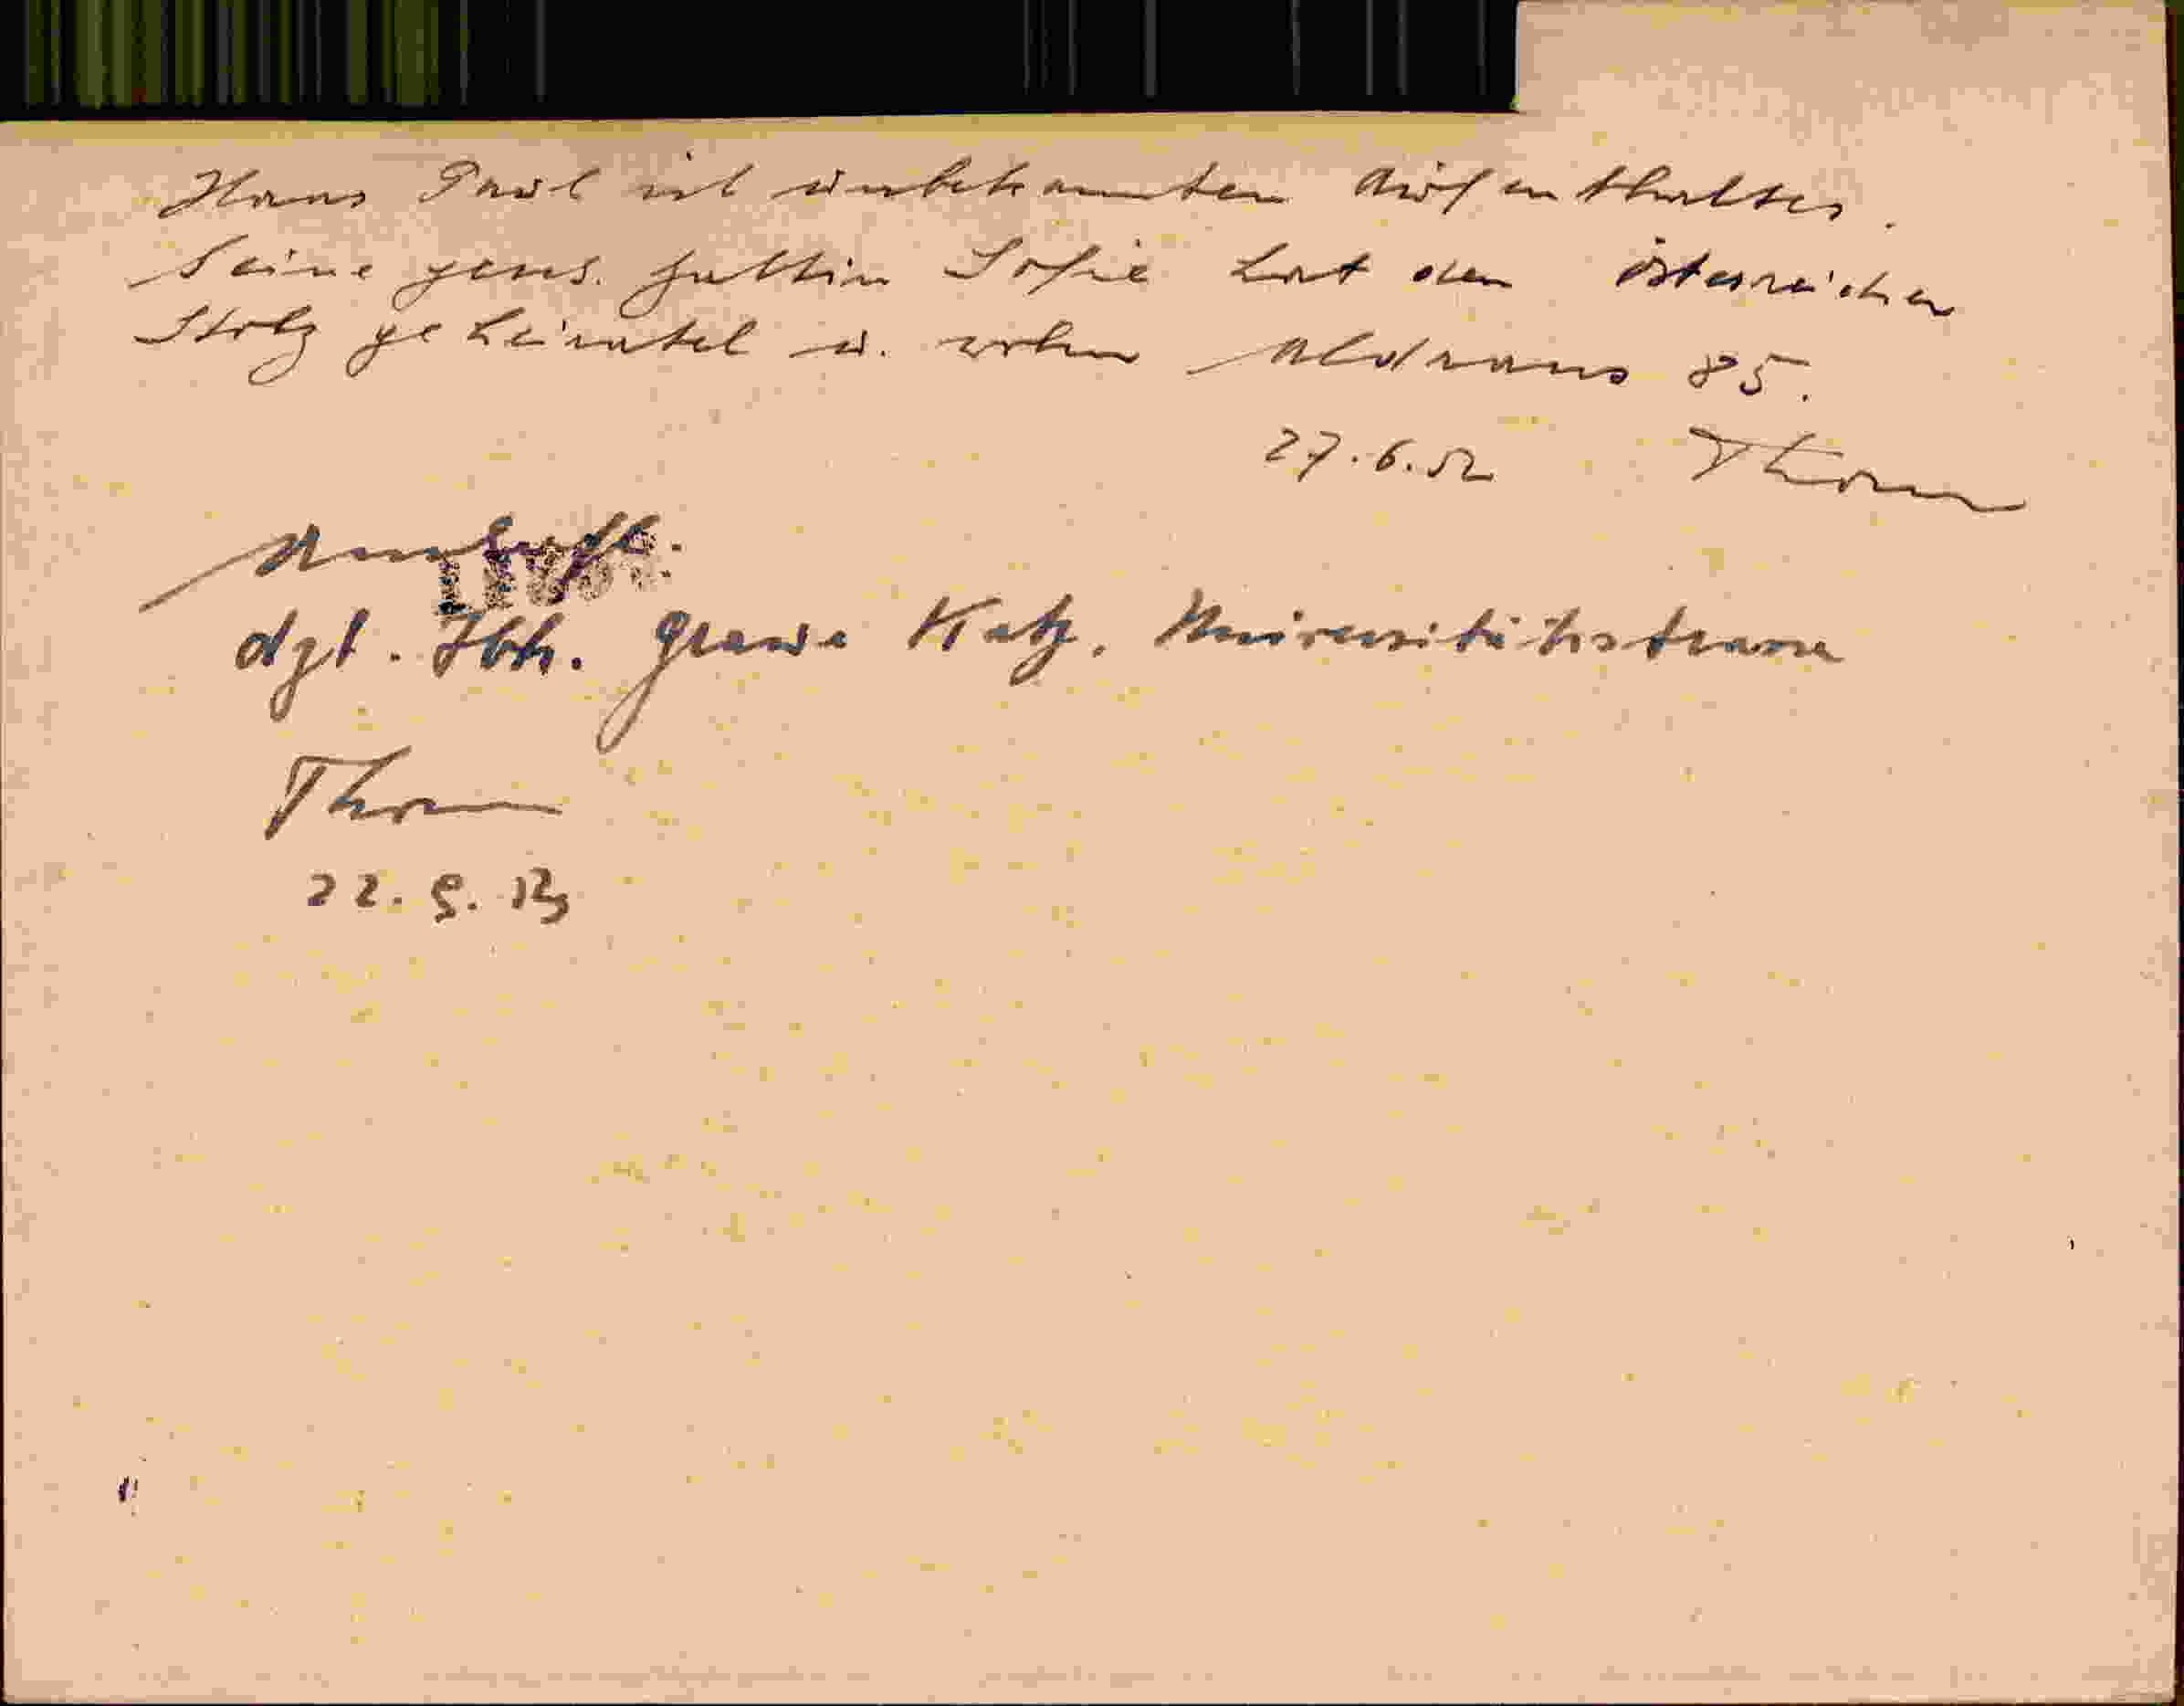 Hans Paul ist unbekannten Aufenthaltes.
Seine gews. Gattin Sofie hat den Österreicher
Stolz geheiratet u. wohn Aldrans 85.
27.6.52 Thom
dzt. Ibk. Graue Katz, Universitätsstrasse
Thom
22. 9.